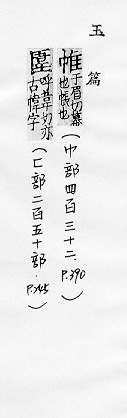 玉篇
帷于眉切幕也帳也（巾部四百三十二.P.390）
𠥎呼韋切亦古幃字（匚部二百五十部.P.245）